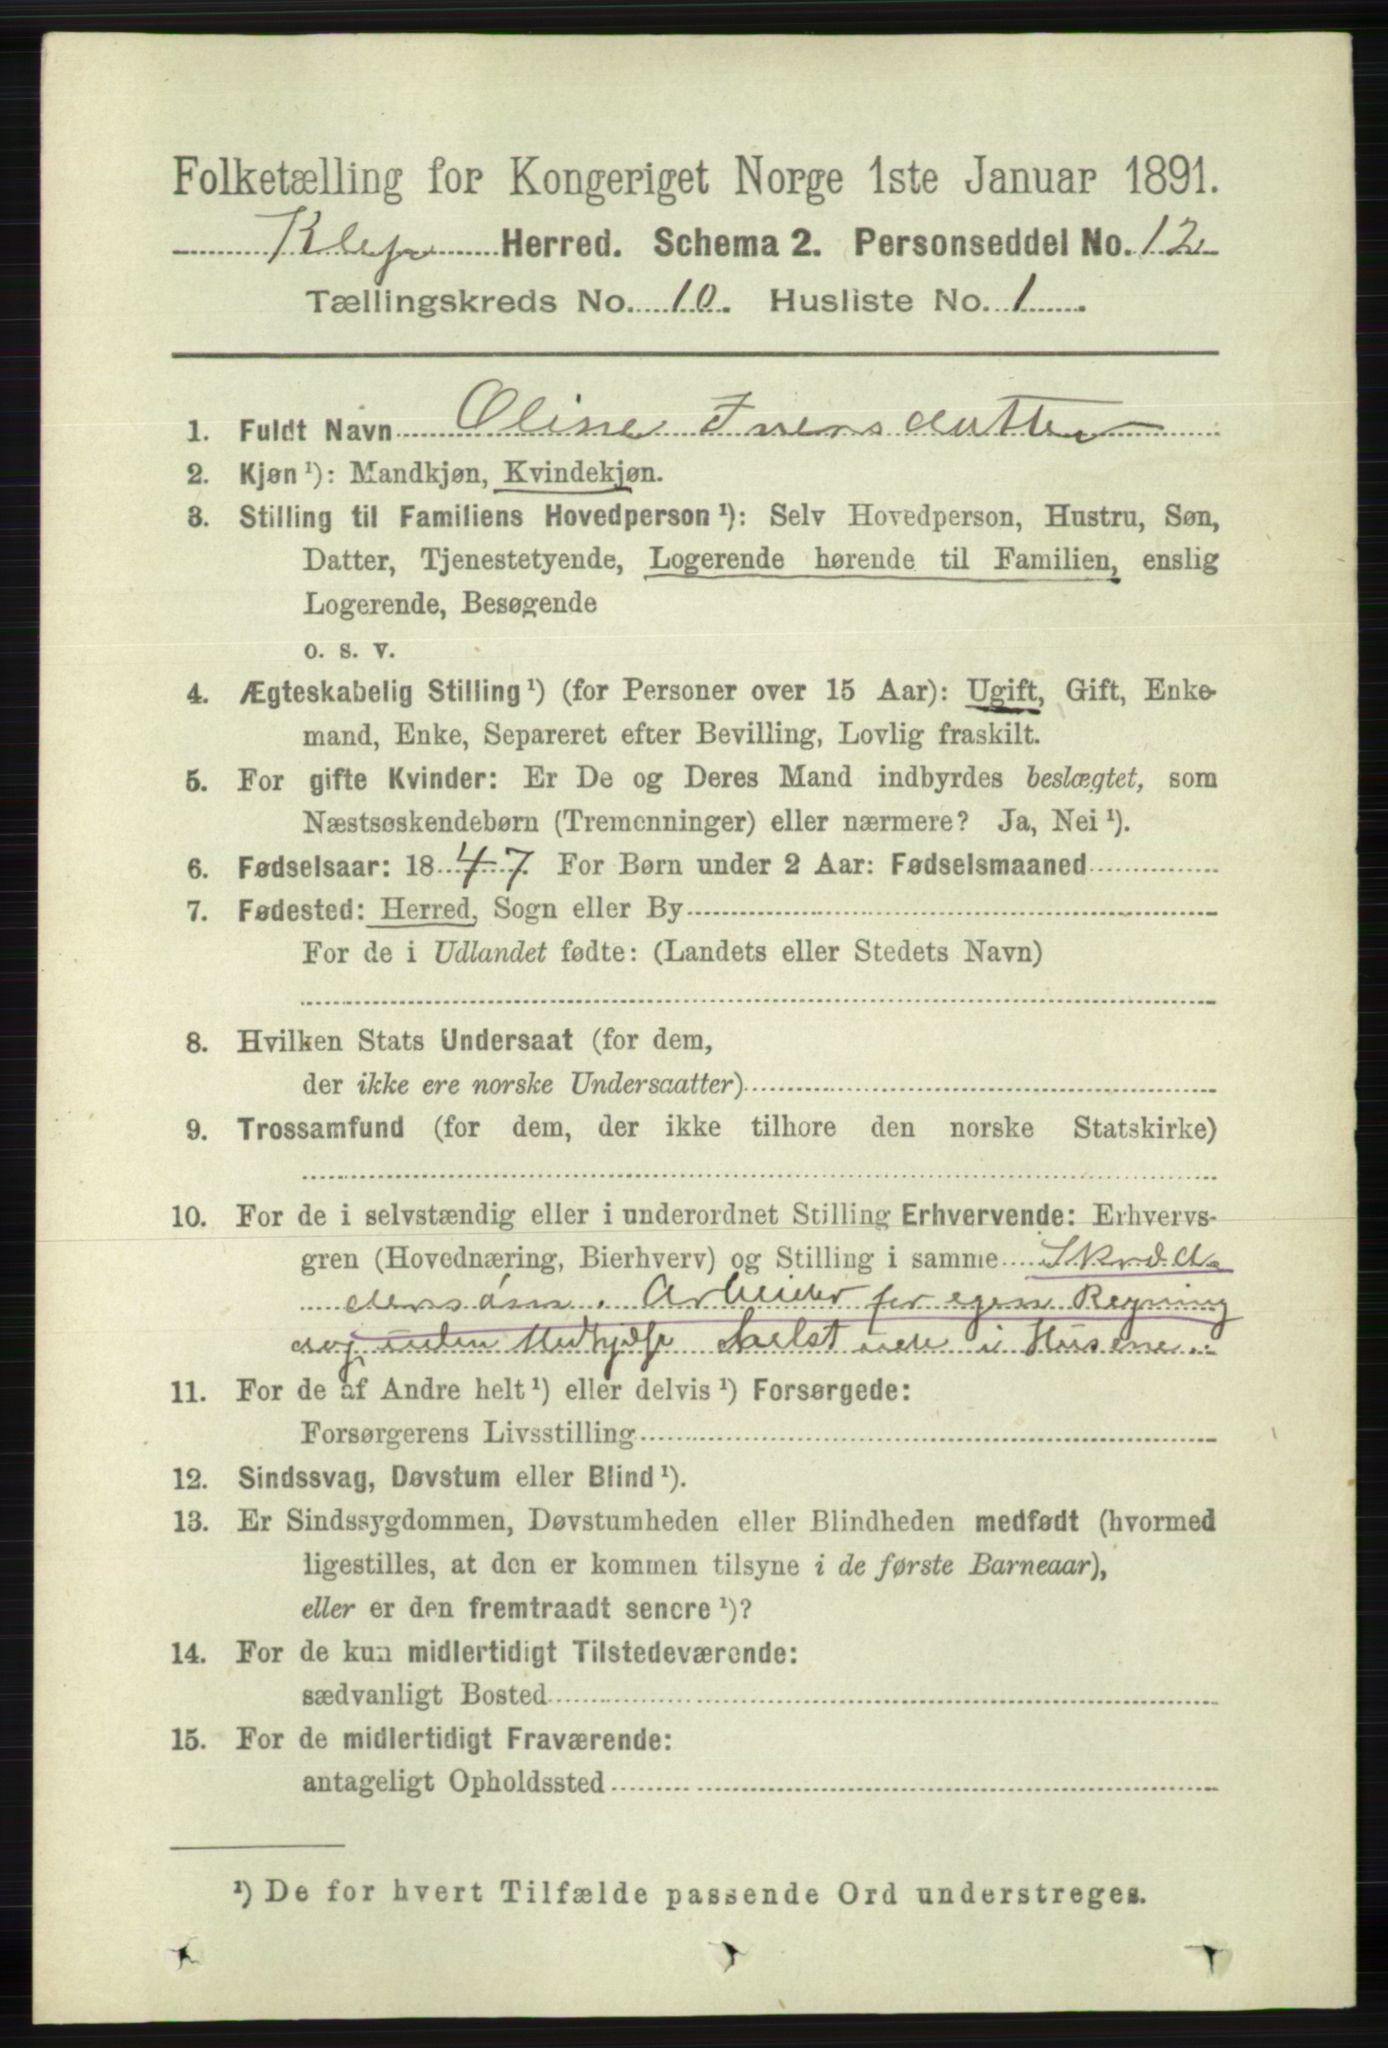 Folketælling for Kongeriget Norge 1ste Januar 1891.
Klep Herred. Schema 2. Personseddel No. 12
Tællingskreds No. 10. Husliste No. 1
1. Fuldt Navn Oline Iversdatter
2. Kjøn¹): Mandkjøn, Kvindekjøn.
3. Stilling til Familiens Hovedperson¹): Selv Hovedperson, Hustru, Søn,
Datter, Tjenestetyende, Logerende hørende til Familien, enslig
Logerende, Besøgende
o. s. v.
4. Ægteskabelig Stilling¹) (for Personer over 15 Aar): Ugift, Gift, Enke-
mand, Enke, Separeret efter Bevilling, Lovlig fraskilt.
5. For gifte Kvinder: Er De og Deres Mand indbyrdes beslægtet, som
Næstsøskendebørn (Tremenninger) eller nærmere? Ja, Nei¹).
6. Fødselsaar: 1847. For Børn under 2 Aar: Fødselsmaaned
7. Fødested: Herred, Sogn eller By
For de i Udlandet fødte: (Landets eller Stedets Navn)
8. Hvilken Stats Undersaat (for dem,
der ikke ere norske Undersaatter)
9. Trossamfund (for dem, der ikke tilhøre den norske Statskirke)
10. For de i selvstændig eller i underordnet Stilling Erhvervende: Erhvervs-
gren (Hovednæring, Bierhverv) og Stilling i samme Skræd-
Arbeider for egen Regning
og uden Medhjælp helst ude i Husene.
11. For de af Andre helt¹) eller delvis¹) Forsørgede:
Forsørgerens Livsstilling
12. Sindssvag, Døvstum eller Blind¹).
13. Er Sindssygdommen, Døvstumheden eller Blindheden medfødt (hvormed
ligestilles, at den er kommen tilsyne i de første Barneaar),
eller er den fremtraadt senere¹)?
14. For de kun midlertidigt Tilstedeværende:
sædvanligt Bosted
15. For de midlertidigt Fraværende:
antageligt Opholdssted
¹) De for hvert Tilfælde passende Ord understreges.